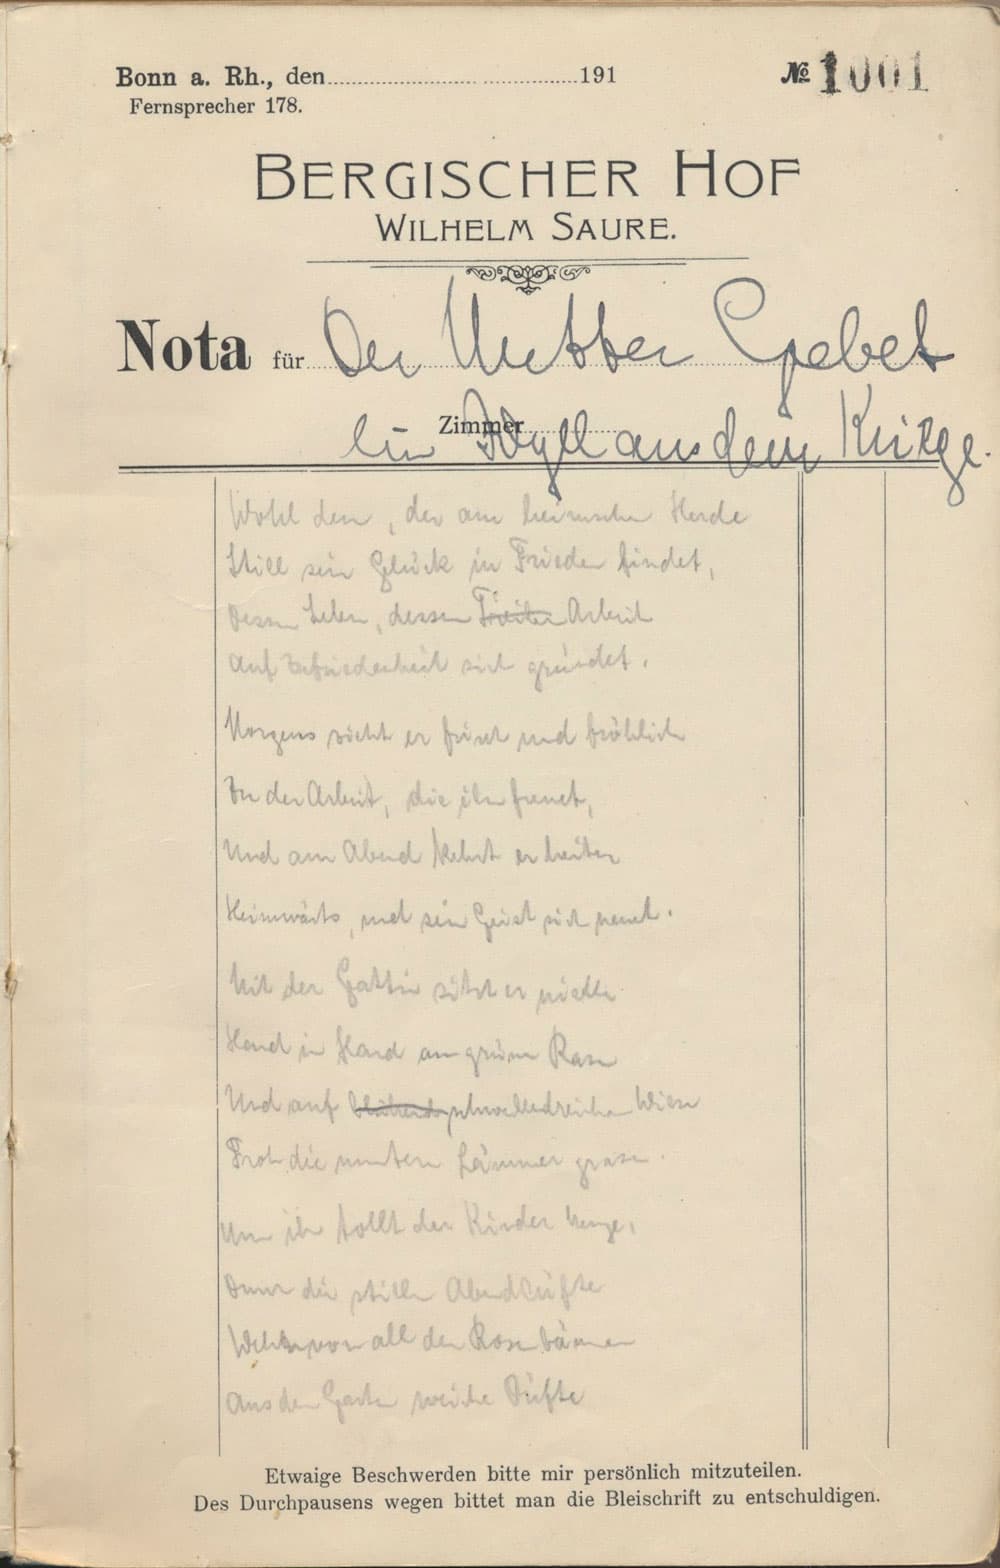 Bonn a. Rh., den 191
№ 1001
Fernsprecher 178.
BERGISCHER HOF
WILHELM SAURE.
Nota für Der Mutter Gebet
Zimmer
Ein Idyll aus dem Kriege.
Wohl dem, der am heimschen Herde
Still sein Glück in Frieden findet,
Dessen Leben, dessen Arbeit
Auf Zufriedenheit sich gründet.
Morgens zieht er frisch und fröhlich
Zu der Arbeit, die ihn freuet,
Und am Abend kehrt er heiter
Heimwärts, und sein Geist sich neuet.
Mit der Gattin sitzt er
Hand in Hand am grünen Rasen
Und auf Wiese
Froh die muntern Lämmer grasen.
Um ihn tollt der Kinder Menge,
Denn die stillen Abendlüfte
Wehen von all den Rosenbäumen
Aus dem Garten weiche Düfte
Etwaige Beschwerden bitte mir persönlich mitzuteilen.
Des Durchpausens wegen bittet man die Bleischrift zu entschuldigen.